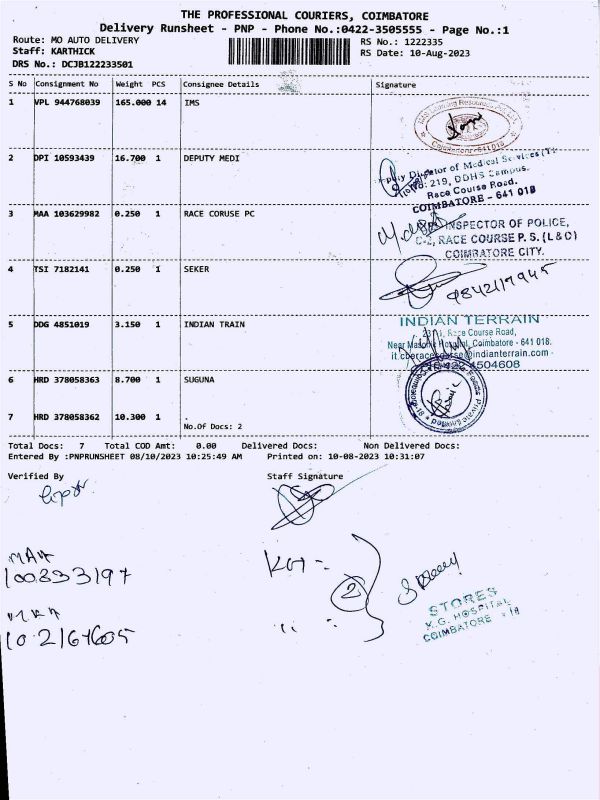 THE PROFESSIONAL COURIERS, COIMBATORE
Delivery Runsheet - PNP - Phone No.:0422-3505555 - Page No.:1
Route: MO AUTO DELIVERY
RS No.: 1222335
Staff: KARTHICK
RS Date: 10-Aug-2023
DRS No.: DCJB122233501
S No Consignment No Weight PCS Consignee Details Signature
1 VPL 944768039 165.000 14 IMS
Coimbatore-641 018
2 DPI 10593439 16.700 1 DEPUTY MEDI
Deputy Director of Medical Services
No: 219, DDHS Campus.
Race Course Road.
COIMBATORE - 641 018
3 MAA 103629982 0.250 1 RACE CORUSE PC
INSPECTOR OF POLICE,
C-2, RACE COURSE P.S. (L&O)
COIMBATORE CITY.
4 TSI 7182141 0.250 1 SEKER
9842117945
5 DDG 4851019 3.150 1 INDIAN TRAIN
INDIAN TERRAIN
Race Course Road,
Near Masonic Hospital, Coimbatore - 641 018.
it.cberacecourse@indianterrain.com
4504608
6 HRD 378058363 8.700 1 SUGUNA
7 HRD 378058362 10.300 1 .
No.Of Docs: 2
Total Docs: 7 Total COD Amt: 0.00 Delivered Docs: Non Delivered Docs:
Entered By :PNPRUNSHEET 08/10/2023 10:25:49 AM Printed on: 10-08-2023 10:31:07
Verified By Staff Signature
MAA
100833197
2
STORES
K.G. HOSPITAL
COIMBATORE - 18